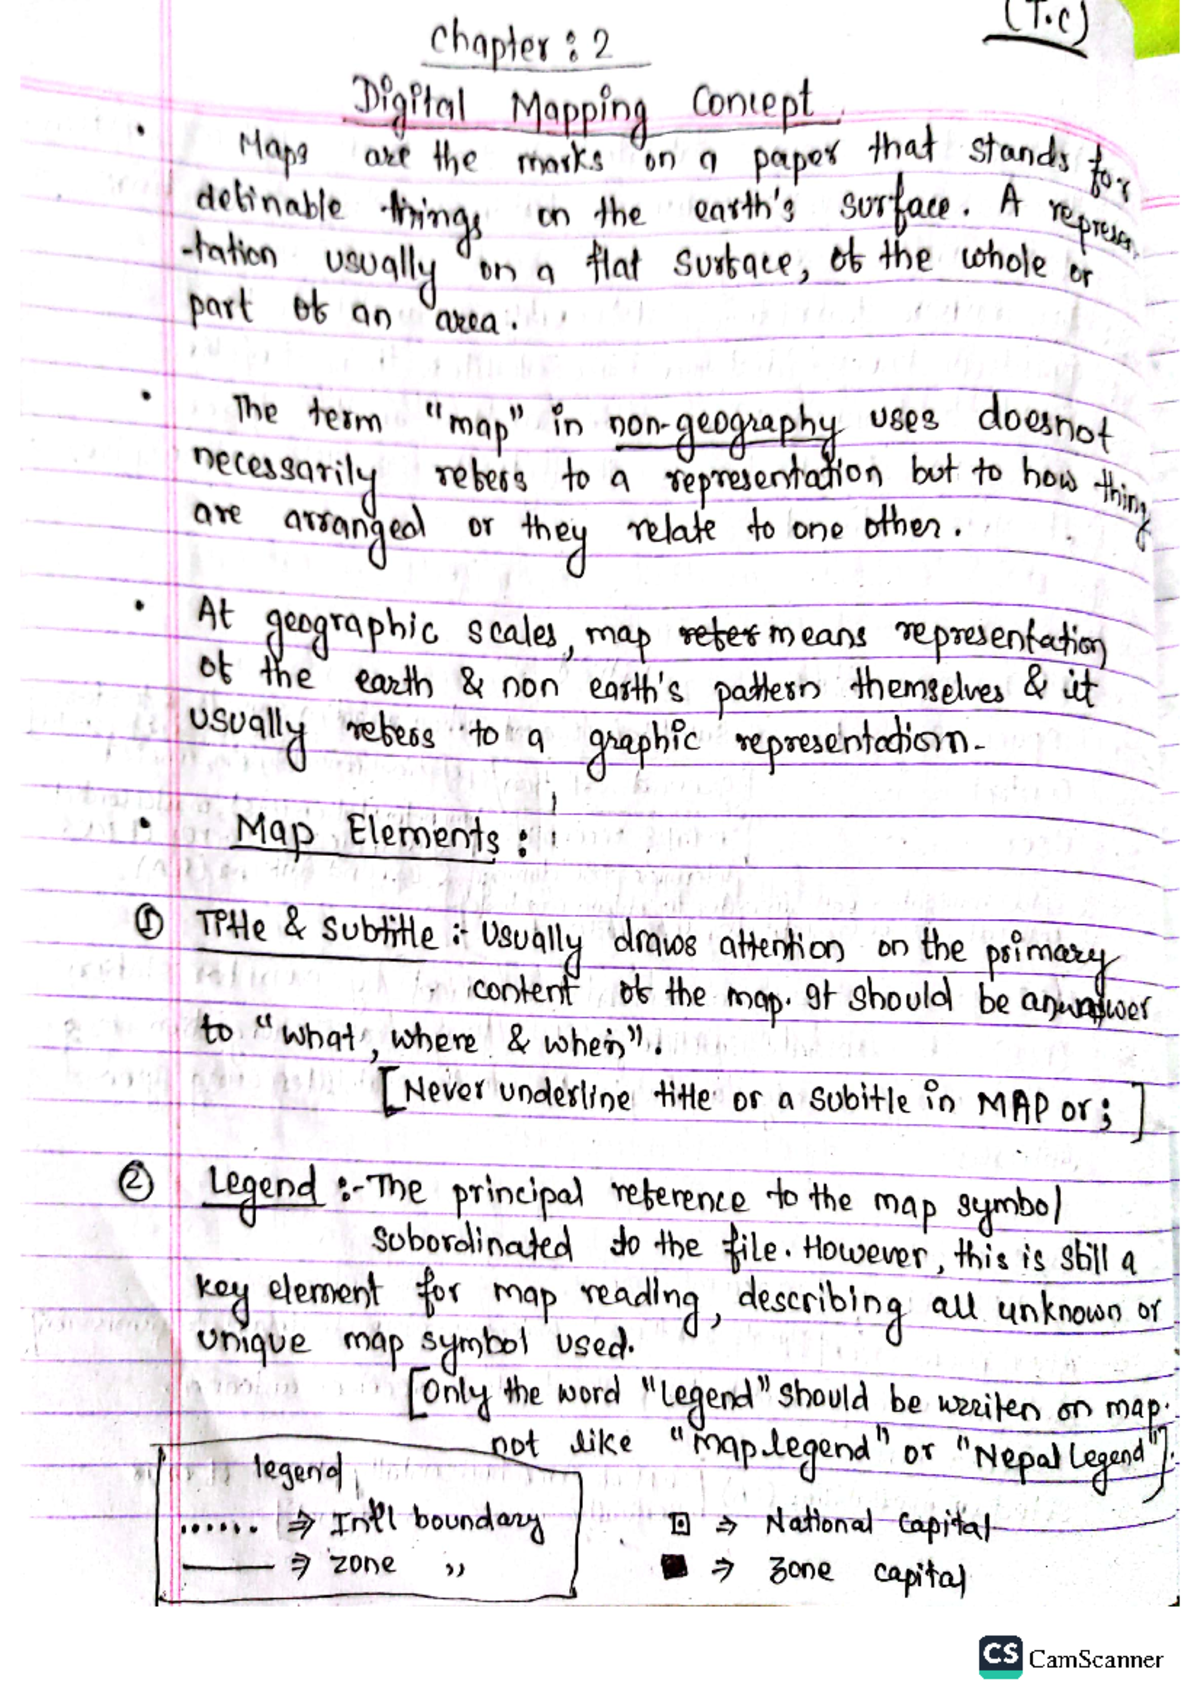 (T.C)
Chapter : 2
Digital Mapping Concept
• Maps are the marks on a paper that stands for
definable things on the earth's surface. A represen
-tation usually on a flat surface, of the whole or
part of an area.
• The term "map" in non-geography uses doesnot
necessarily refers to a representation but to how thing
are arranged or they relate to one other.
• At geographic scales, map refer means representation
of the earth & non earth's pattern themselves & it
usually refers to a graphic representation.
• Map Elements :
① Title & Subtitle :- Usually draws attention on the primary
content of the map. It should be answer
to "what, where & when".
[Never underline title or a subitle in MAP or ; ]
② Legend :- The principal reference to the map symbol
subordinated to the file. However, this is still a
key element for map reading, describing all unknown or
unique map symbol used.
[Only the word "Legend" should be wriiten on map.
not like "map legend" or "Nepal Legend"].
legend
...... ⇒ Int'l boundary
⇒ zone ,,
⇒ National Capital
⇒ zone capital
CS CamScanner